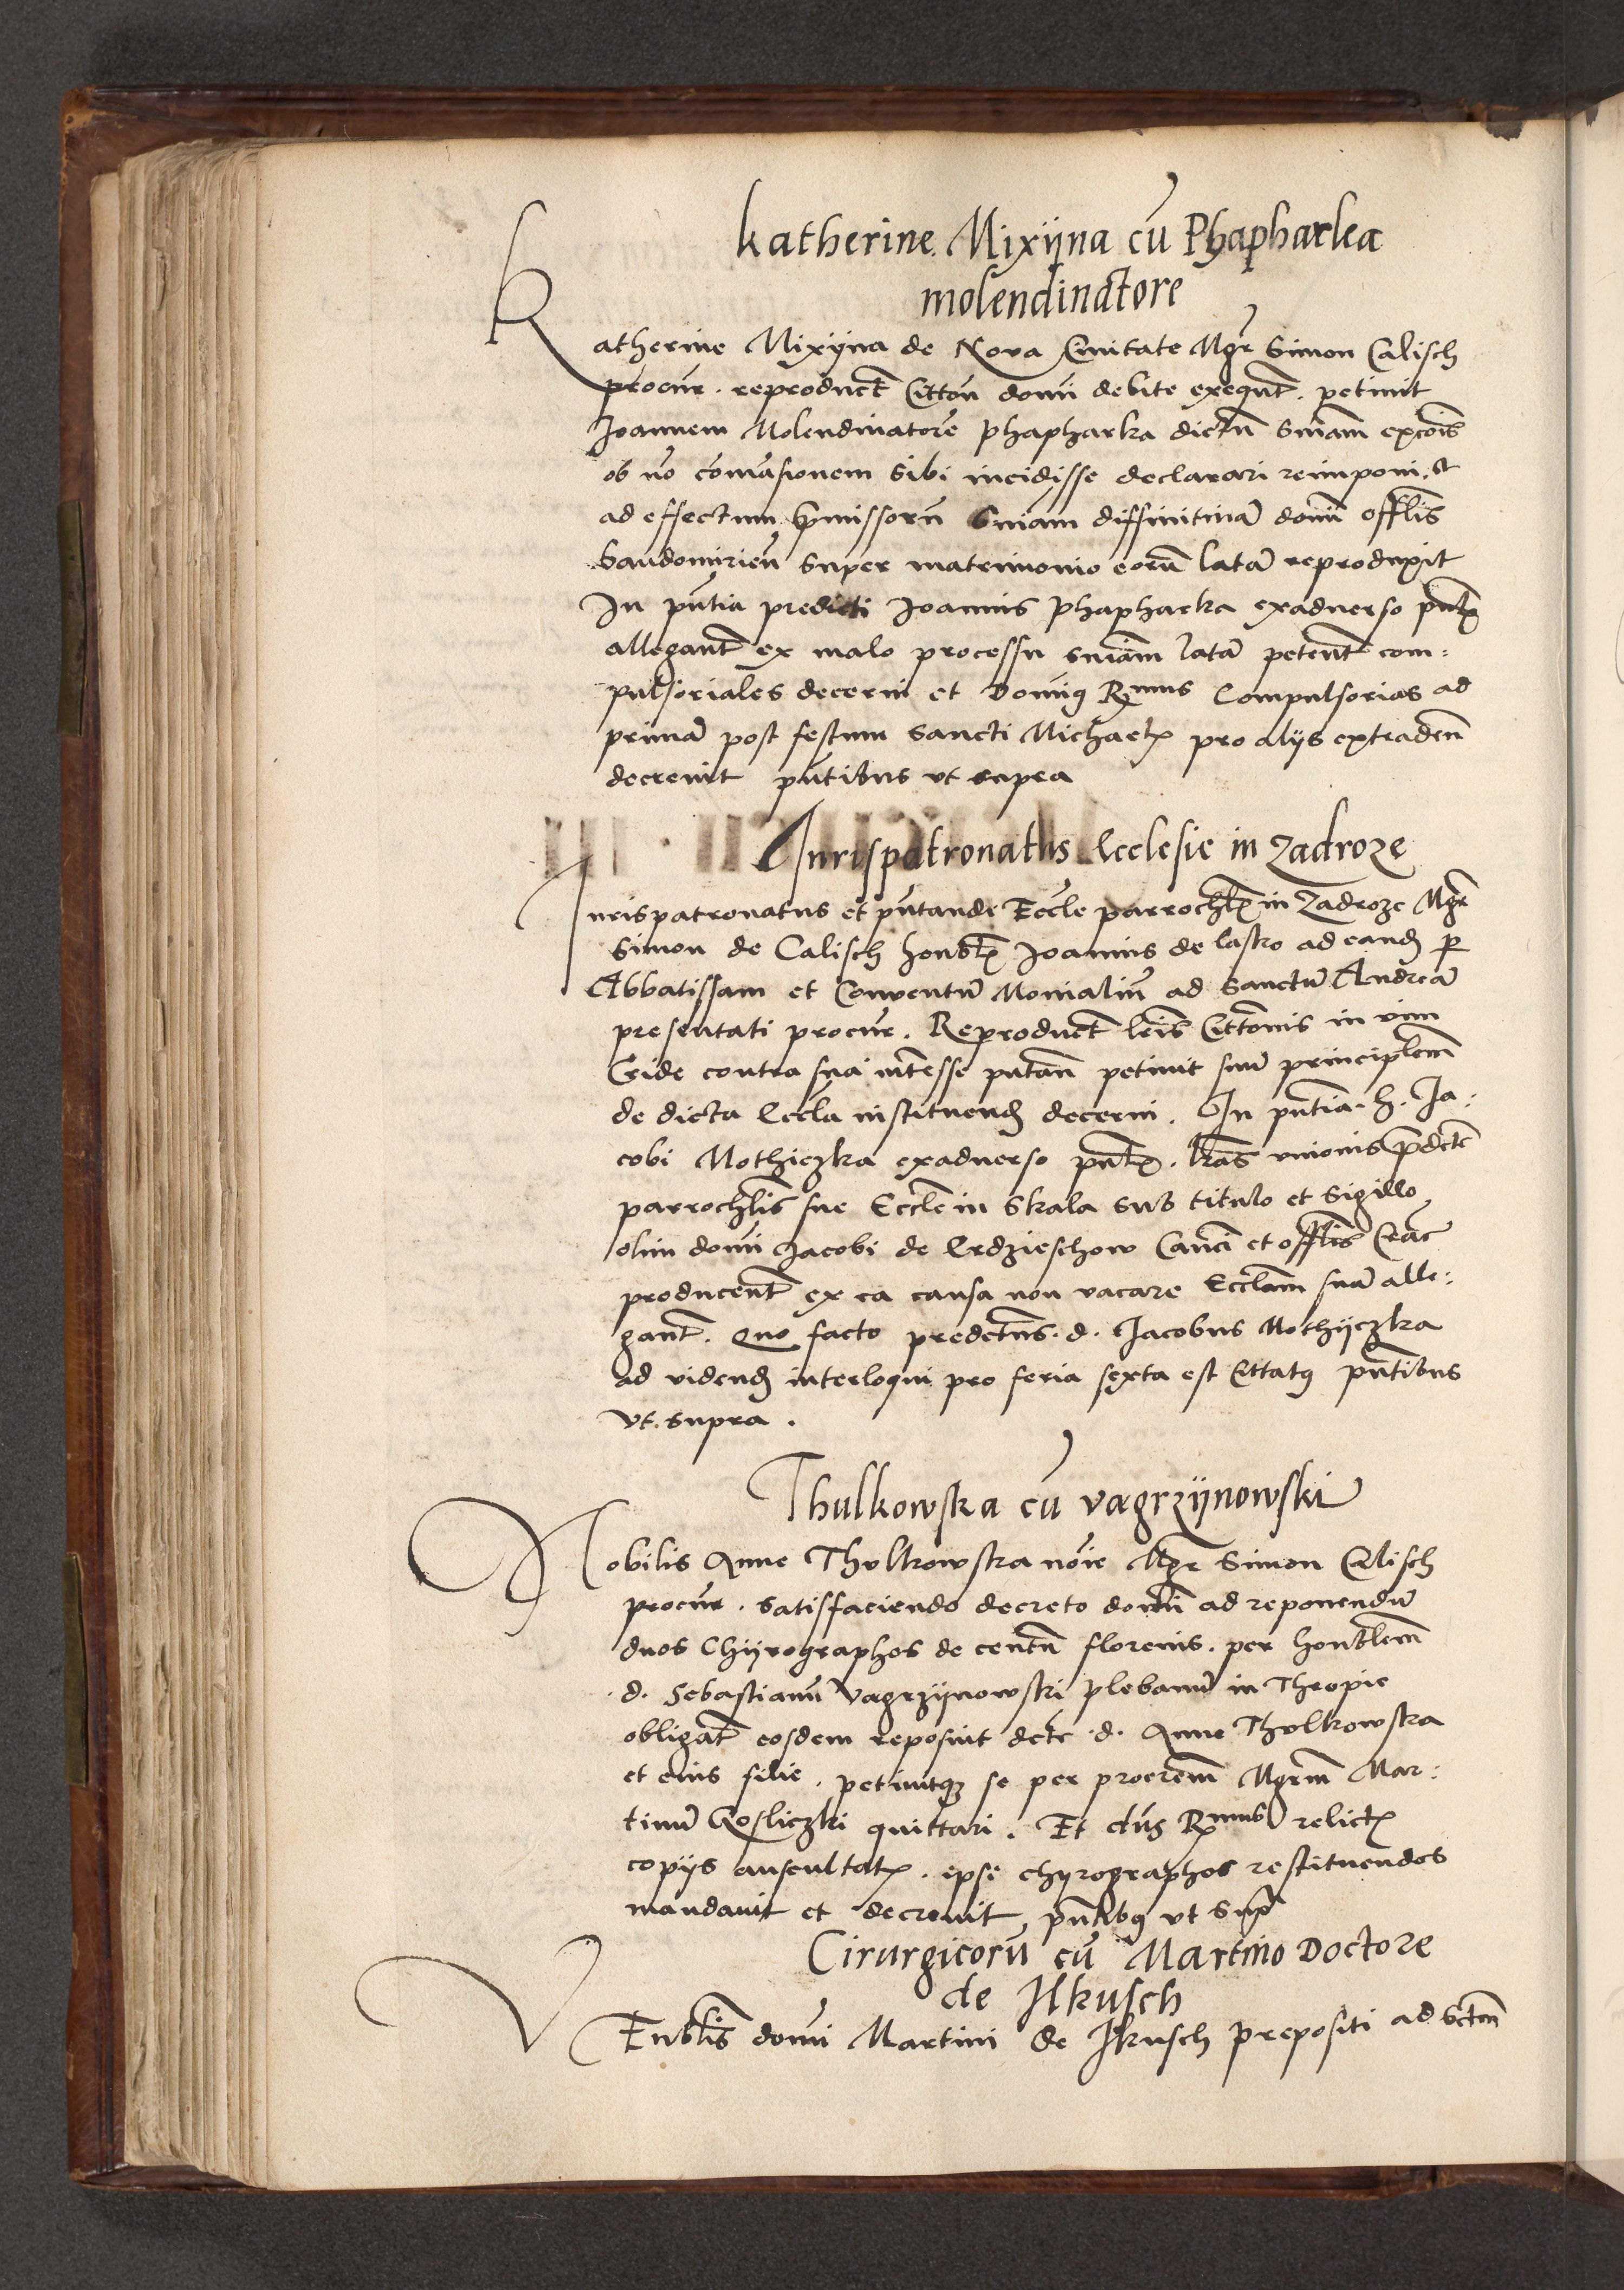 Katherine Mixÿna cū Phapharka
molendinatore
Katherine Mixÿna de Nova Civitate Mgr Simon Calisch
procur. reproduct Citton domi debite exequt. petivit
Joannem Molendinatorē phapharka dictū sniam excois
ob nō comāsionem sibi incidisse declarari reimponi et
ad effectum pmissorū Sniam diffinitivā domi offlis
Sandomirien super matrimonio eorū latā reproduxit
In pntia predicti Joannis phapharka exadverso pntis
allegant ex malo processu sniam latā petent com:
pulsoriales decerni et Domin9 Rmus Compulsorias ad
primā post festum sancti Michaelis pro alÿs extraden
decrevit pntibus vt supra
Jurispatronatus Ecclesie in Zadroze
Jurispatronatus et pntande Eccle parrochlis in Zadroze Mgr
Simon de Calisch honblis Joannis de lasko ad eand per
Abbatissam et Conventū Monialiū ad Sanctū Andreā
presentati procur. Reproduct lris Cittonis in vim
Cride contra sua intesse putan petivit suū principlem
de dicta Eccla instituend decerni. In pntia h. Ja:
cobi Mothiczka exadverso pntis. lras unionis predicte
parrochlis sue Eccle in Skala sub titulo et sigillo
olim domi Jacobi de Erdzieschow Canci et offlis Crac
producent ex ea causa non vacare Ecclam suā alle:
gant. Quo facto predictus. d. Jacobus Mothÿczka
ad vidend interloqui pro feria sexta est Cittat9 pntibus
vt supra.
Thulkowska cū vagrzÿnowski
Nobilis Anne Thulkowska noie Mgr Simon Calisch
procur. satisfaciendo decreto domi ad reponendū
duos Chÿrographos de centū florenis. per honblem
d. Sebastianū Vagrzÿnowski plebanū in Thropie
obligat eosdem reposuit dcte d. Anne Thulkowska
et eius filie. petivitq3 se per procrem Mgrm Mar:
tinū Gosliczki quittari. Et dns Rmus relictis
copÿs auscultatis. ipse chyrographos restituendos
mandavit et decrevit pntib9 vt supra
Cirurgicorū cū Martino Doctore
de Ilkusch
VEnblis domi Martini de Ilkusch prepositi ad Sctm